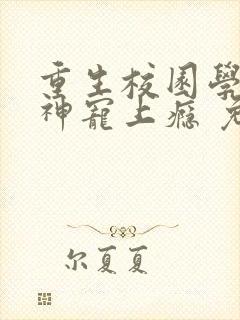 重生校园學
神寵上癮
尔夏夏